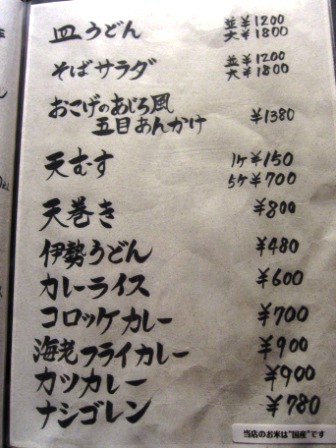 皿うどん 並¥1200
大¥1800
そばサラダ 並¥1200
大¥1800
おこげのあじろ風
五目あんかけ ¥1380
天むす 1ケ¥150
5ケ¥700
天巻き ¥800
伊勢うどん ¥480
カレーライス ¥600
コロッケカレー ¥700
海老フライカレー ¥900
カツカレー ¥900
ナシゴレン ¥780
当店のお米は"国産"です